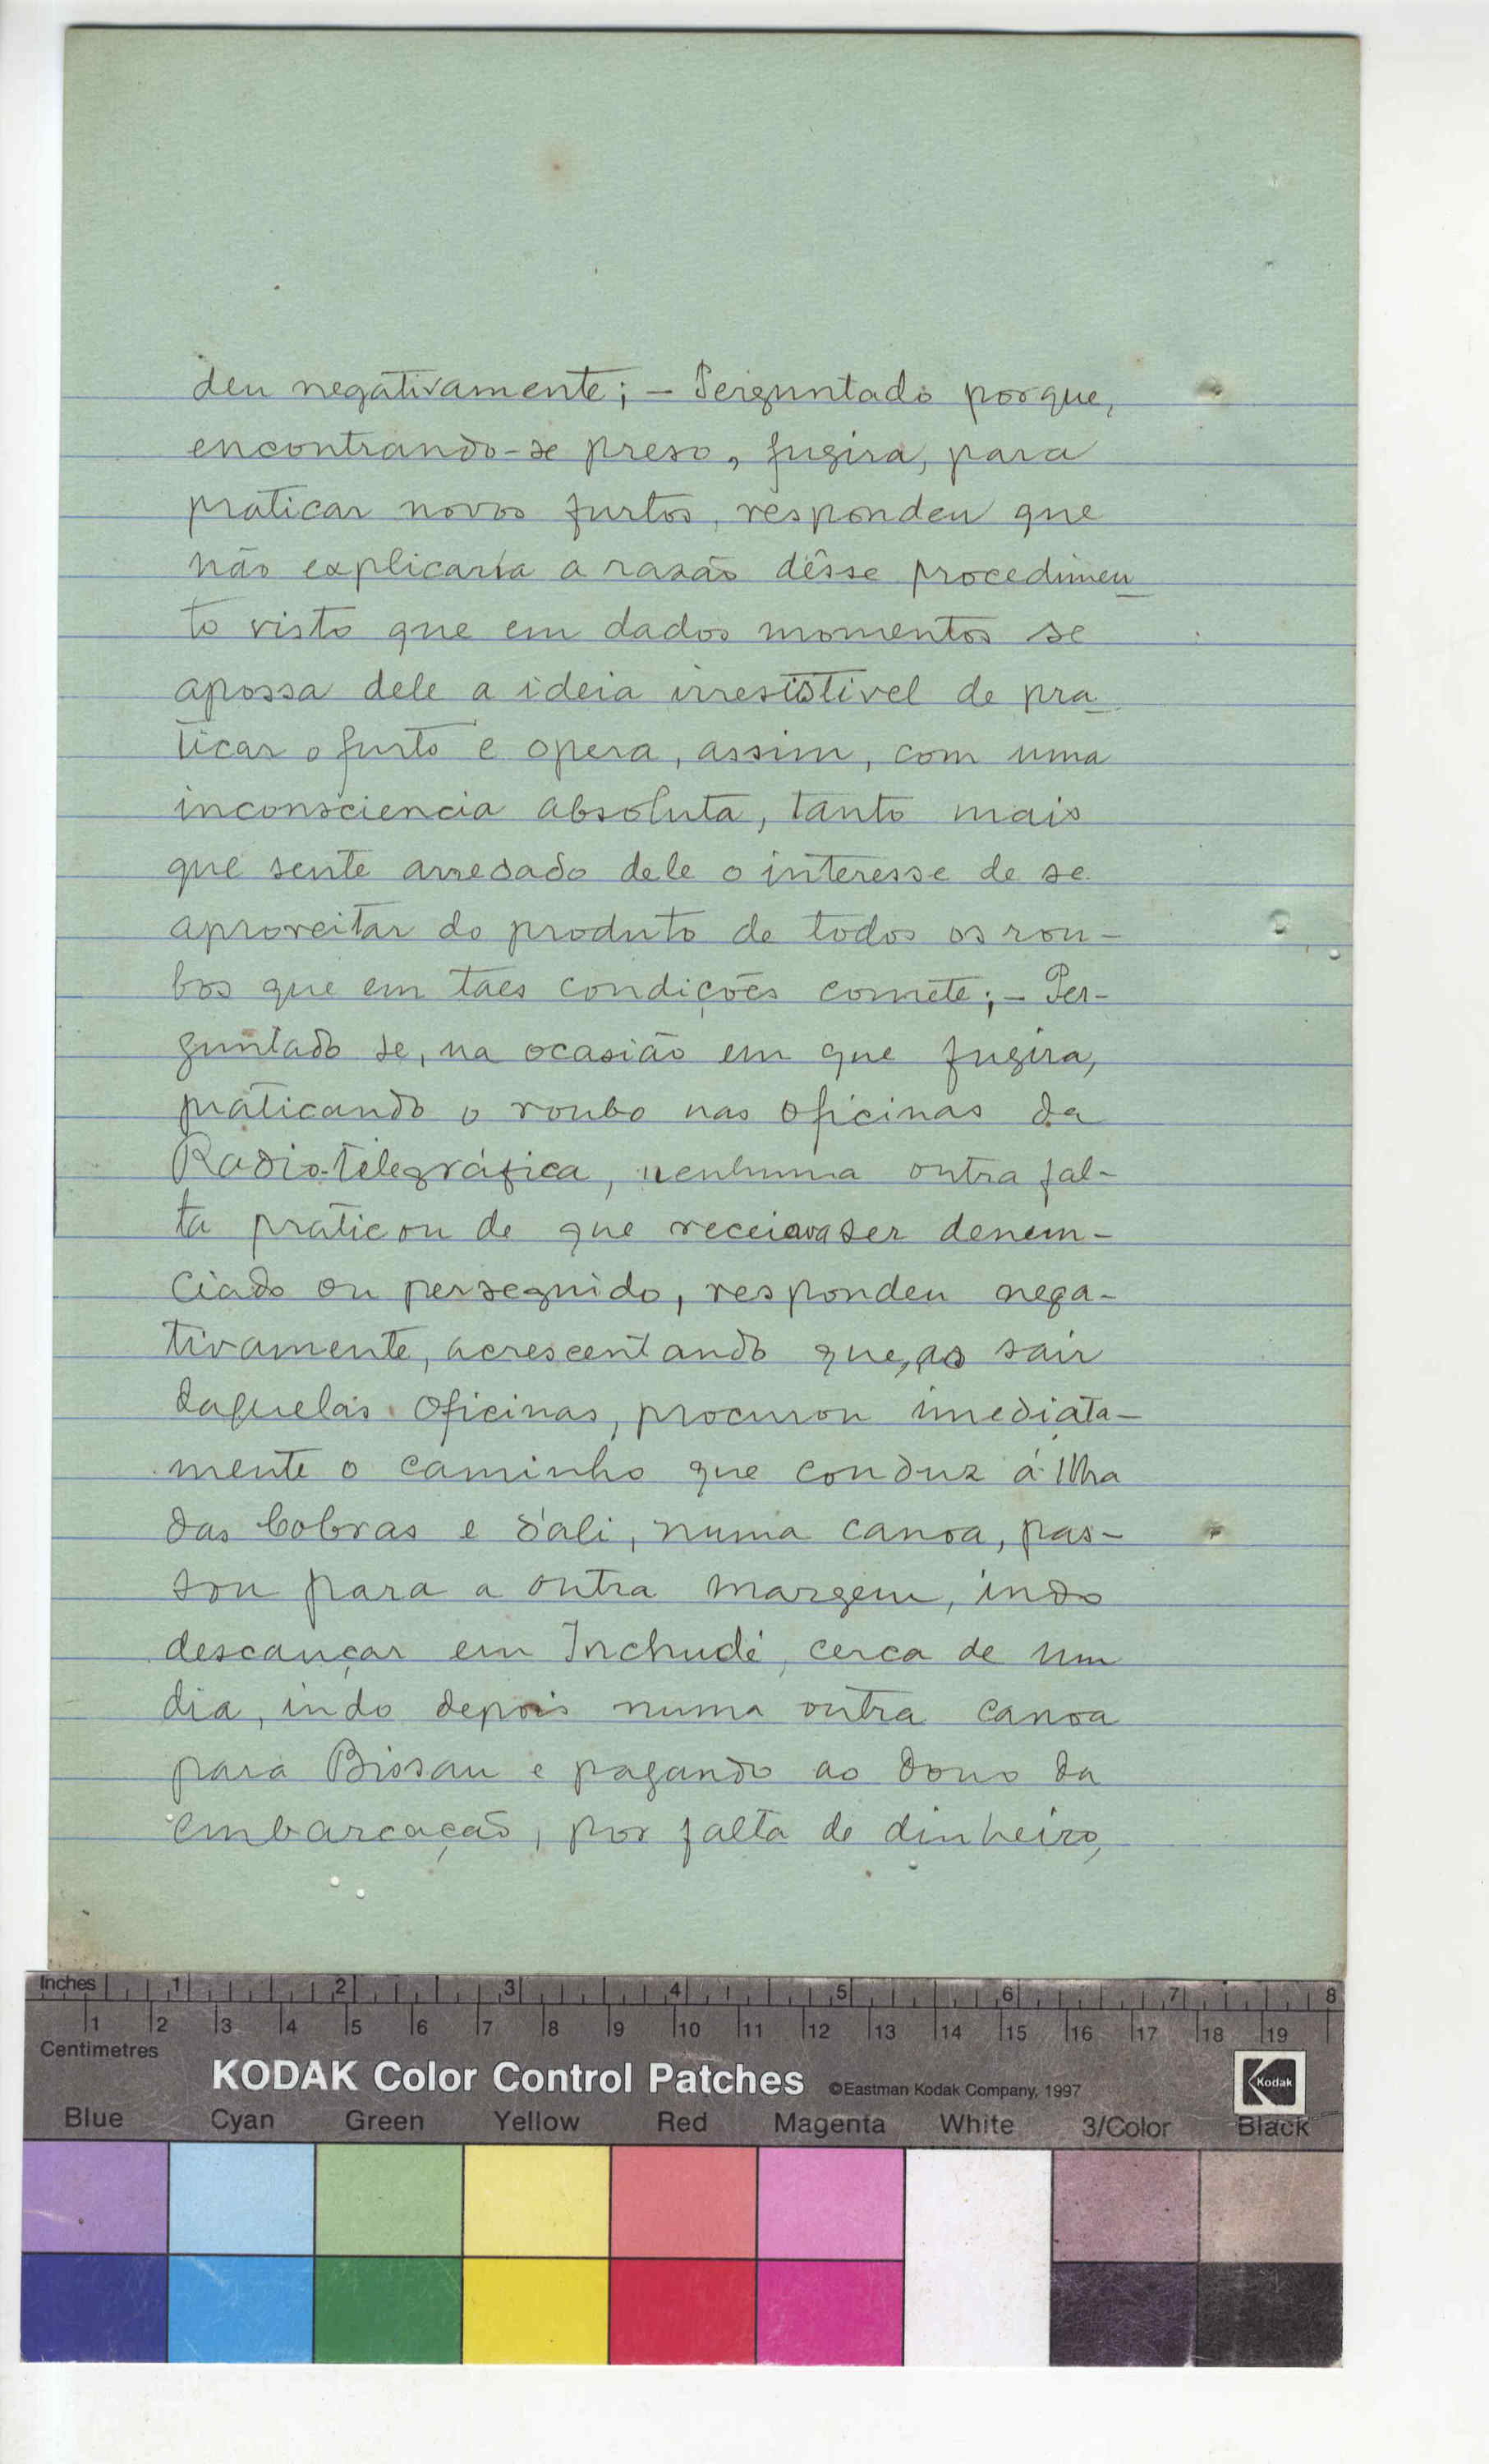 deu negativamente; — Perguntado porque,
encontrando-se preso, fugira, para
praticar novos furtos, respondeu que
não explicaria a razão dêsse procedimen
to visto que em dados momentos se
apossa dele a ideia irresistivel de pra
ticar o furto e opera, assim, com uma
inconsciencia absoluta, tanto mais
que sente arredado dele o interesse de se
aproveitar do produto de todos os rou-
bos que em taes condições comete; — Per-
guntado se, na ocasião em que fugira,
praticando o roubo nas oficinas da
Radio-telegráfica, nenhuma outra fal-
ta praticou de que receiava ser denun-
ciado ou perseguido, respondeu nega-
tivamente, acrescentando que, ao sair
daquelas oficinas, procurou imediata-
mente o caminho que conduz á Ilha
das Cobras e d'ali, numa canoa, pas-
sou para a outra margem, indo
descançar em Inchudé, cerca de um
dia, indo depois numa outra canoa
para Bissau e pagando ao dono da
embarcação, por falta de dinheiro,
Inches 1 2 3 4 5 6 7 8
1 2 3 4 5 6 7 8 9 10 11 12 13 14 15 16 17 18 19
Centimetres
KODAK Color Control Patches ©Eastman Kodak Company, 1997 Kodak
Blue Cyan Green Yellow Red Magenta White 3/Color Black